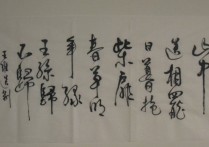 山中
送相罷
日暮掩
柴扉
春草明
年緑
王孫歸
不歸